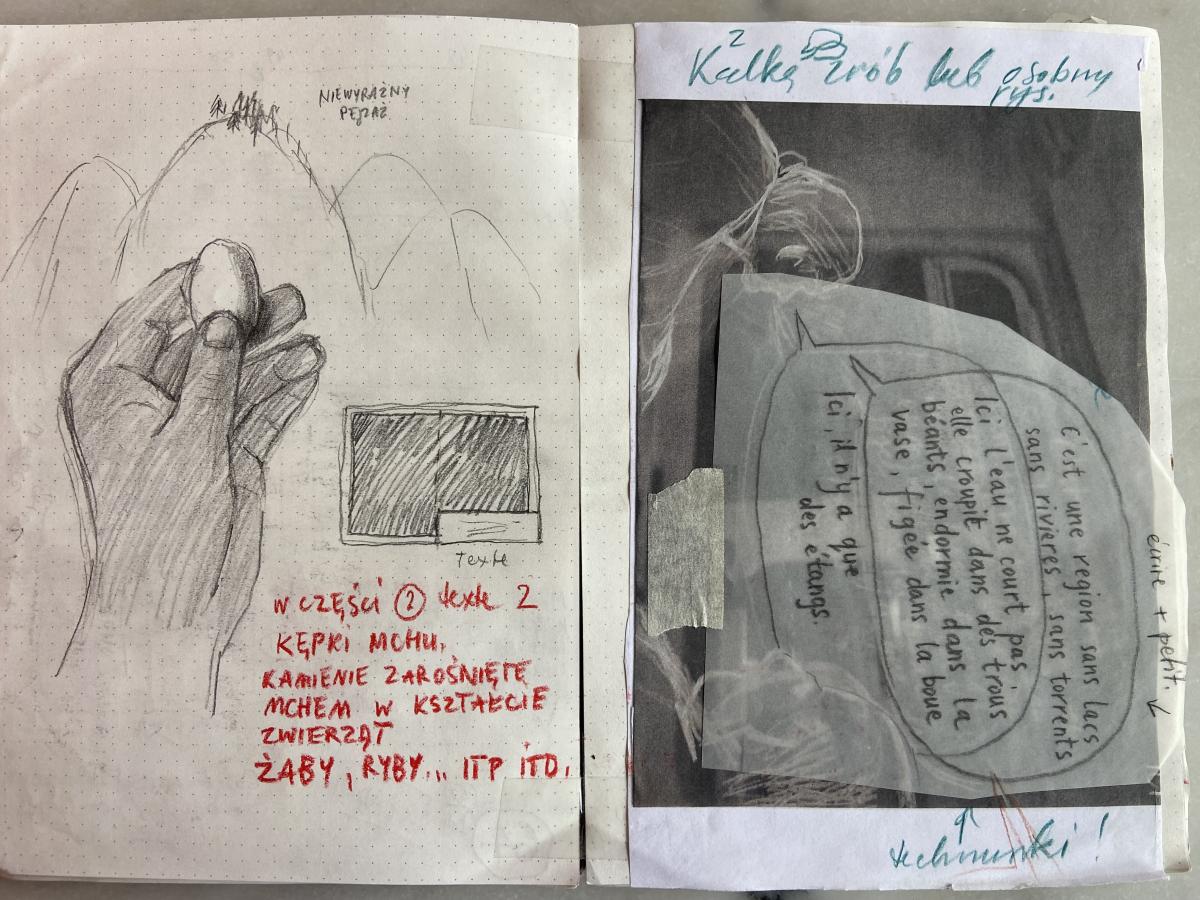 NIEWYRAŹNY
PEJZAŻ
Texte
W CZĘŚCI ② texte 2
KĘPKI MCHU,
KAMIENIE ZAROŚNIĘTE
MCHEM W KSZTAŁCIE
ZWIERZĄT
ŻABY, RYBY... ITP ITD.
2
Kalką zrób lub osobny
rys.
C'est une region sans lacs
sans rivières, sans torrents
Ici l'eau ne court pas
elle croupit dans des trous
béants, endormie dans la
vase, figée dans la boue
Ici, il n'y a que
des étangs.
écrire + petit.
!